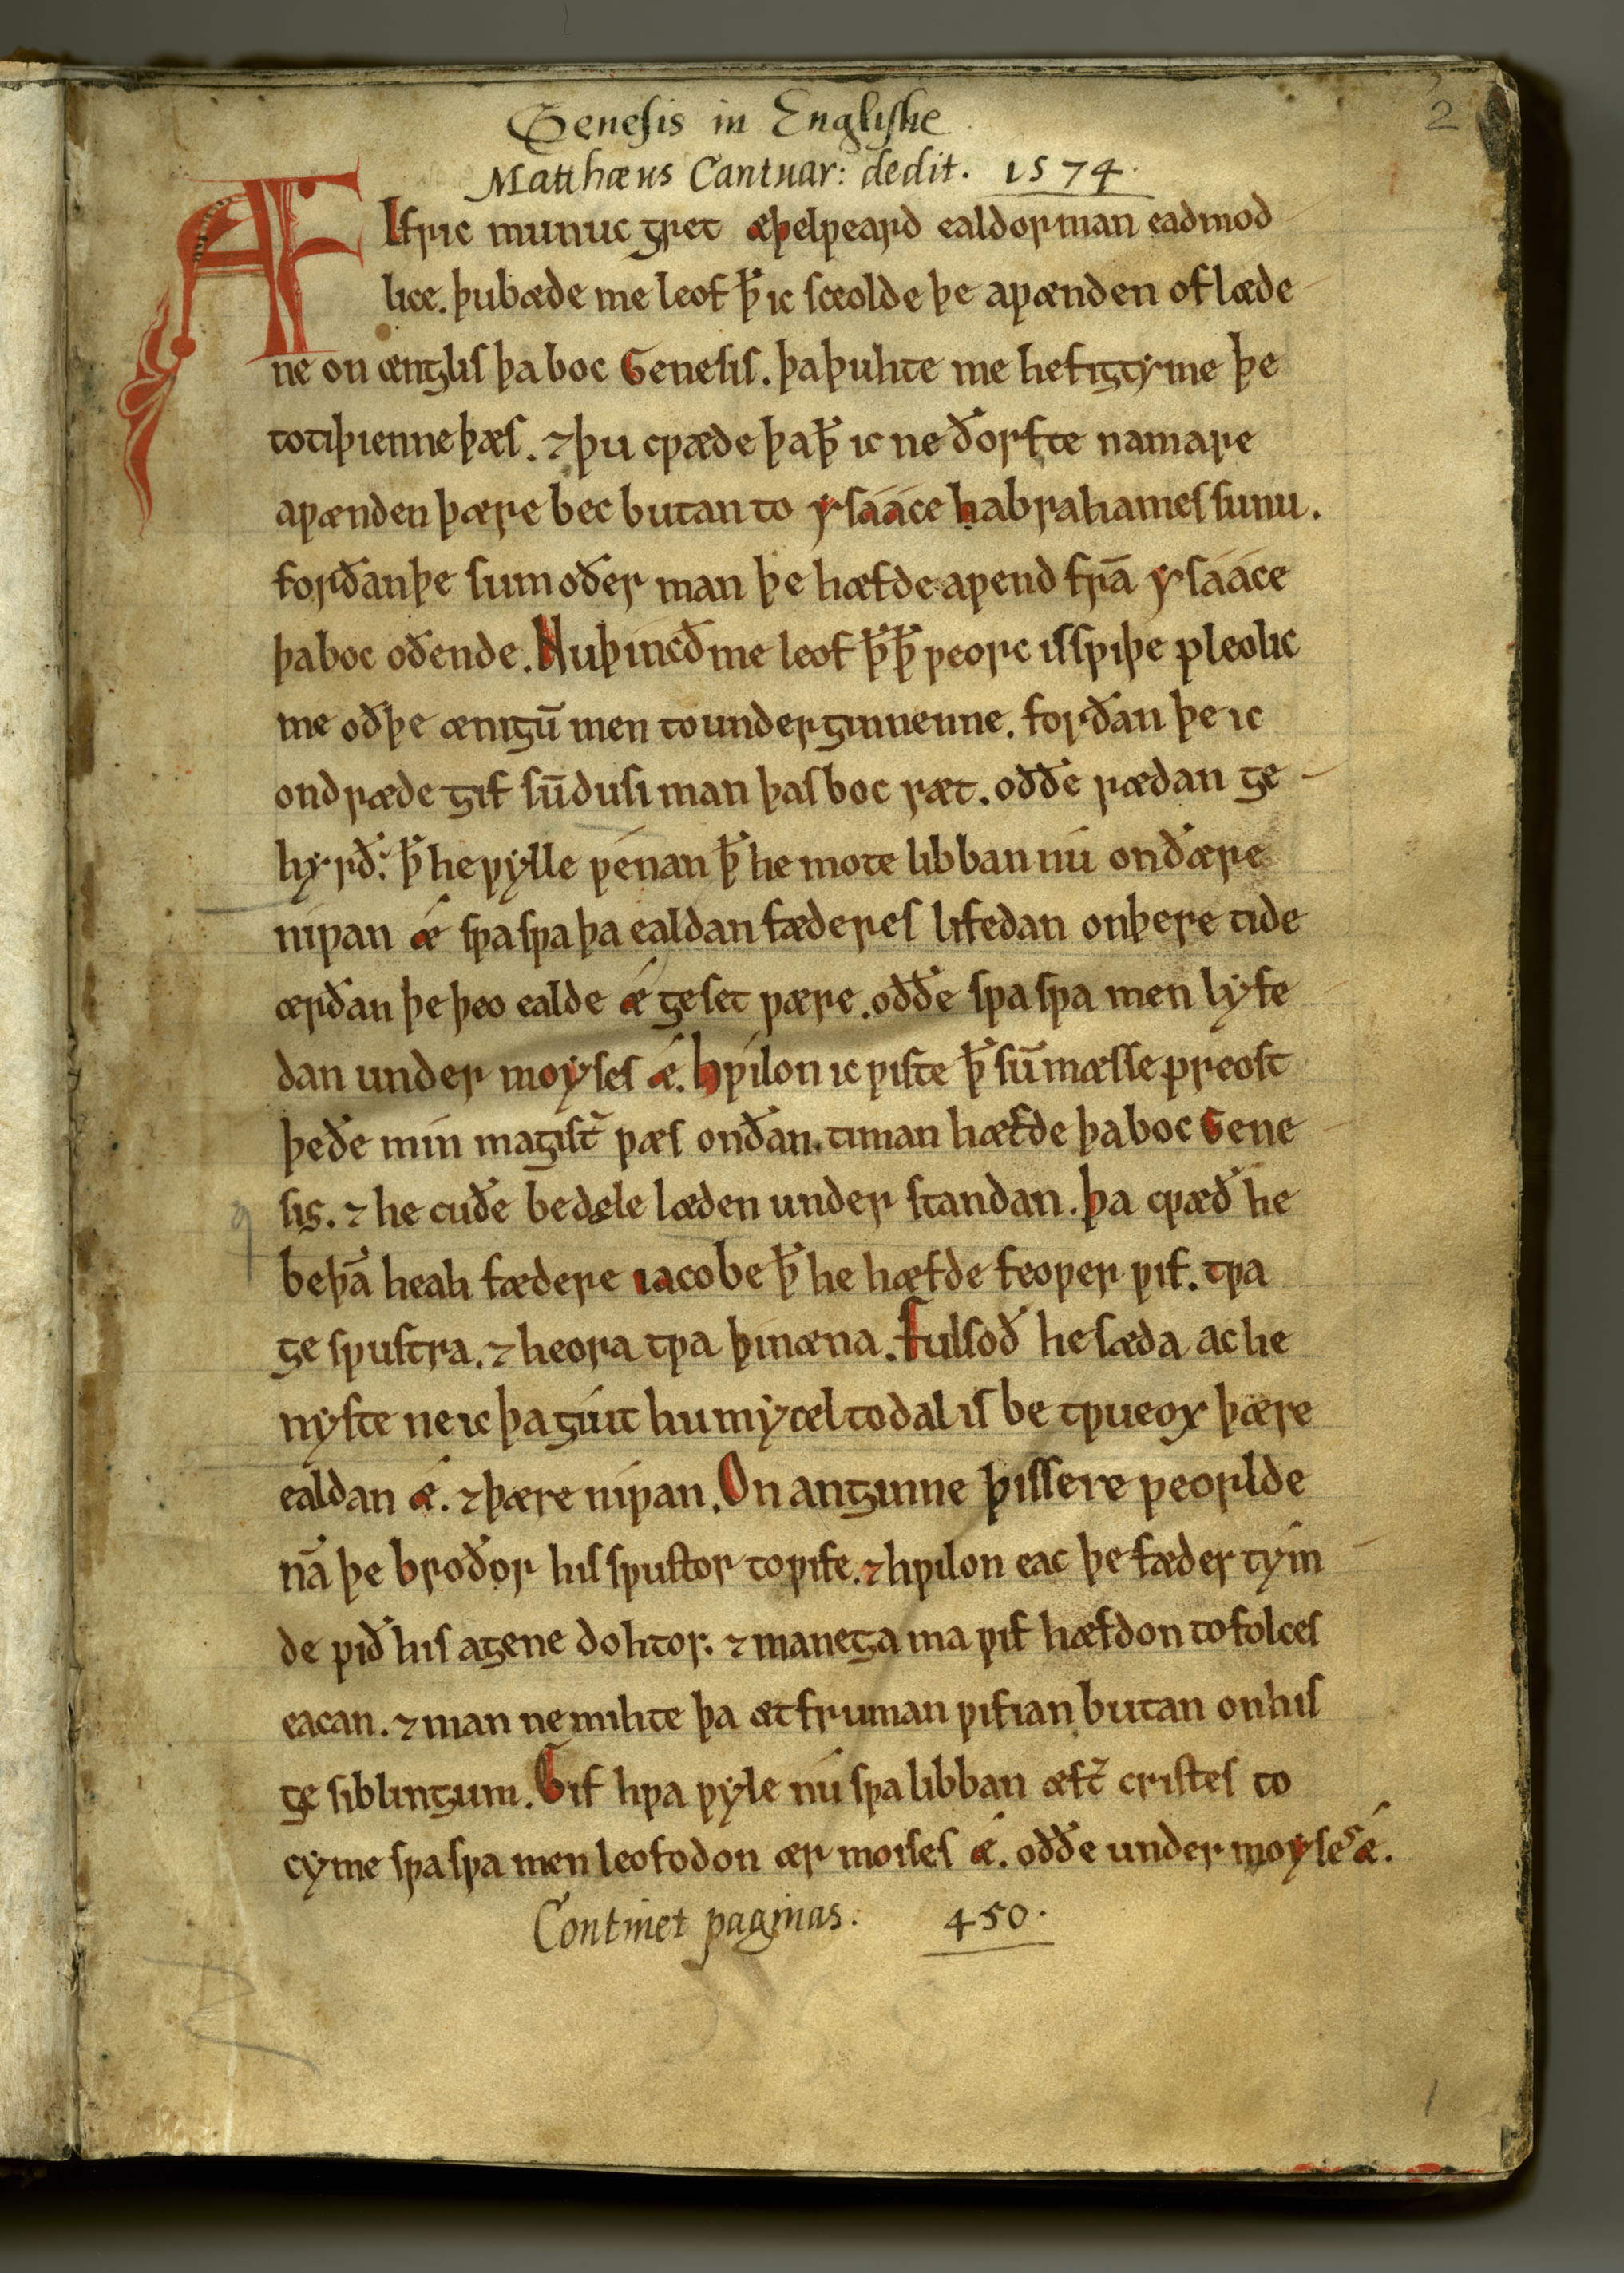 Genesis in Englishe
2
Matthæus Cantuar: dedit. 1574.
ÆLfric munuc gret æþelƿeard ealdorman eadmod
lice. þubæde me leof ꝥ ic sceolde þe aƿænden of læde
ne on ænglis þa boc Genesis. þa þuhte me hefigtyme þe
totiþienne þæs. ⁊ þu cƿæde þa ꝥ ic ne ðorfte na mare
aƿænden þære bec butan to ysááce habrahames sunu.
forðan þe sum oðer man þe hæfde aƿend frā ysááce
þa boc oð ende. Nu þincð me leof ꝥ ꝥ ƿeorc is sƿiþe pleolic
me oðþe ænigū men to underginnenne. forðan þe ic
ondræde gif sū dusi man þas boc ræt. oððe rædan ge
hyrð. ꝥ he ƿylle ƿénan ꝥ he mote libban nú on ðære
niƿan ǽ sƿa sƿa þa ealdan fæderes lifedan on þere tide
ærðan þe þeo ealde ǽ geset ƿære. oððe sƿa sƿa men lyfe
dan under moyses ǽ. hƿilon ic ƿiste ꝥ sū mæsse preost
þe ðe min magist̄ ƿæs on ðan timan hæfde þa boc Gene
sis. ⁊ he cuðe be dæle læden under standan. þa cƿæð he
be þā heah fædere iacobe ꝥ he hæfde feoƿer ƿif. tƿa
ge sƿustra. ⁊ heora tƿa þinæna. ful soð he sæda ac he
nyste ne ic þa gúit hu mycel todal is be tƿueox þære
ealdan ǽ. ⁊ þære niƿan. On anginne þissere ƿeorulde
nā þe broðor his sƿustor to ƿife. ⁊ hƿilon eac þe fæder tým
de ƿið his agene dohtor. ⁊ manega ma ƿif hæfdon to folces
eacan. ⁊ man ne mihte þa æt fruman ƿifian butan on his
ge siblingum. Gif hƿa ƿyle nú sƿa libban æft̄ cristes to
cyme sƿa sƿa men leofodon ær moises ǽ. oððe under moyses ǽ.
Continet paginas. 450.
1